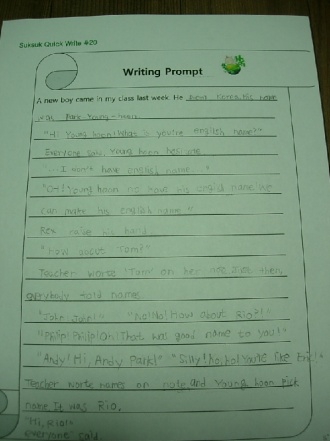 Sukauk Quick Write #20
Writing Prompt
A new boy came in my class last week. He
was Park Young-hoon.
"Hi Young hoon! What is you're english name?"
Everyone said. Young hoon has one
"...I don't have english name..."
"Oh! Young hoon no have his english name. We
can make his english name."
Rex raise his hand.
"How about Tom?"
Teacher worte 'Tom' on her note. then,
everybody told name.
"Jake Jake!" "No! No! How about Rio?!"
"Philip! Philip! Oh! That was good name to you!"
"Andy! Hi, Andy Park!" "Silly! No, No! You're like Eric!"
Teacher worte names on note, and Young hoon pick
name. It was Rio.
"Hi, Rio!"
everyone said.